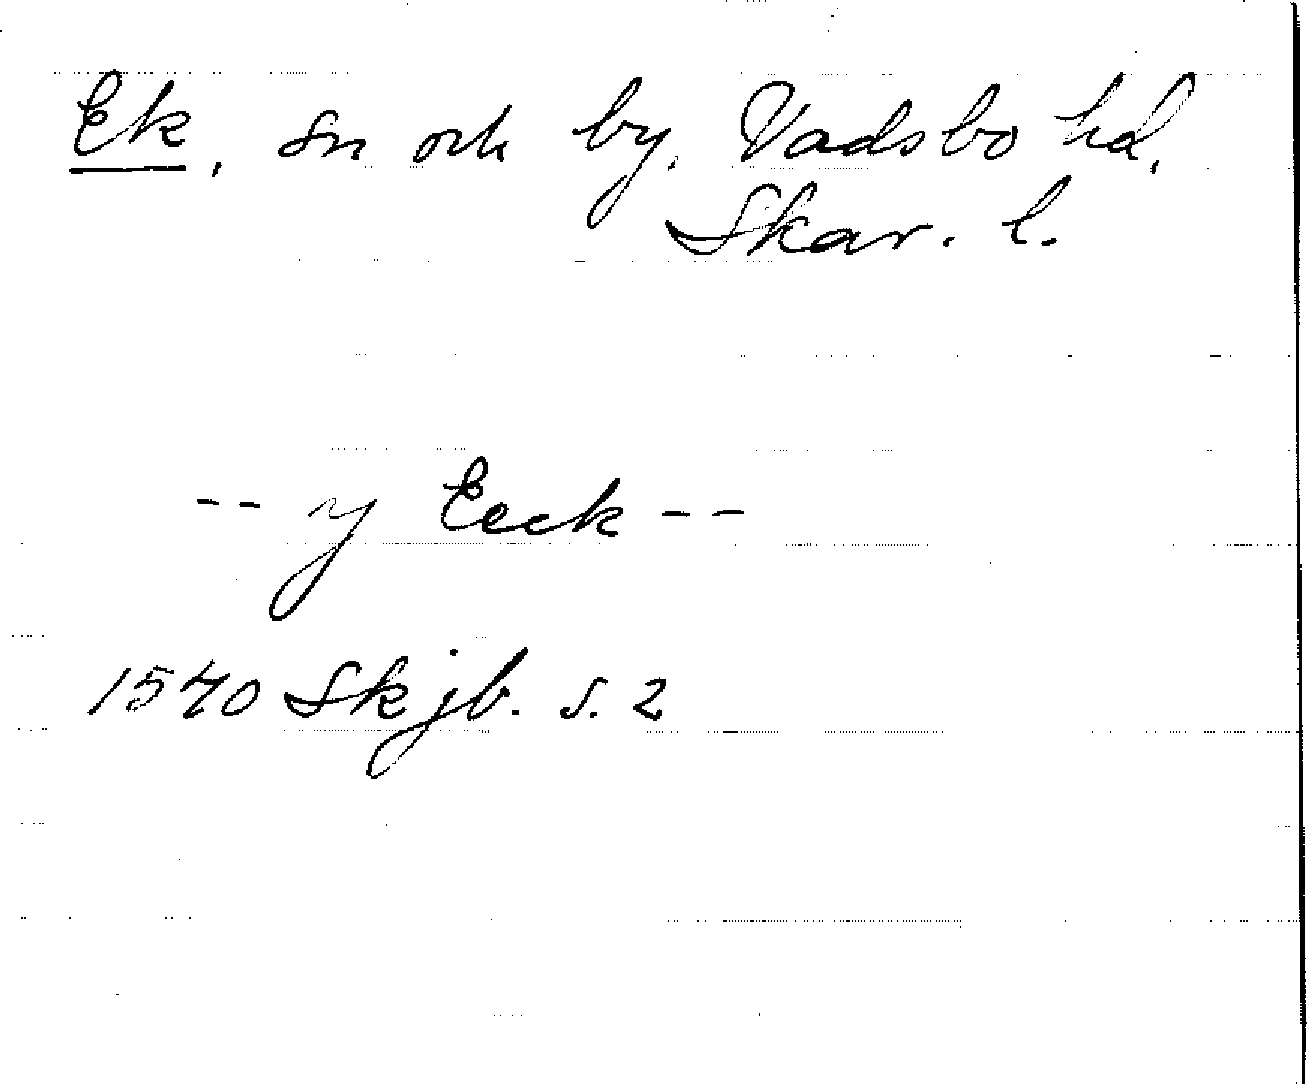 Ek, sn och by, Vadsbo hd,
Skar. l.
-- y Eeck --
1540 Skjb. s. 2